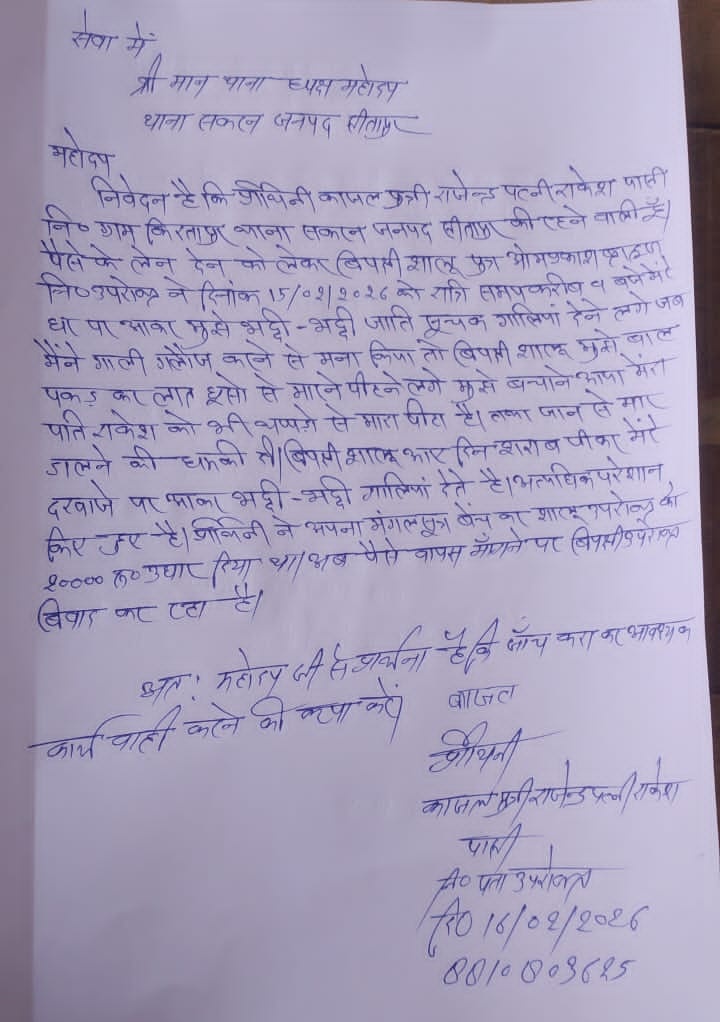 सेवा में
श्री मान थाना ध्यक्ष महोदय
थाना सकरन जनपद सीतापुर
महोदय
निवेदन है कि प्रार्थिनी काजल पुत्री राजेन्द्र पत्नी राकेश पासी
नि० ग्राम किरतापुर थाना सकरन जनपद सीतापुर की रहने वाली हूँ।
पैसे के लेन देन को लेकर बिपक्षी शालू पुत्र ओमप्रकाश ब्राह्मण
नि० उपरोक्त ने दिनांक 15/02/2026 को रात्रि समय करीब 9 बजे मेरे
घर पर आकर मुझे भद्दी-भद्दी जाति सूचक गालियां देने लगे जब
मैंने गाली गलौज करने से मना किया तो बिपक्षी शालू मुझे बाल
पकड़ कर लात घूसो से मारने पीटने लगे मुझे बचाने आया मेरा
पति राकेश को भी थप्पड़ो से मारा पीटा है। तथा जान से मार
डालने की धमकी दी। बिपक्षी शालू आए दिन शराब पीकर मेरे
दरवाजे पर आकर भद्दी-भद्दी गालियां देते है। अत्यधिक परेशान
किए हुए है। प्रार्थिनी ने अपना मंगलसूत्र बेंच कर शालू उपरोक्त को
20000 रू० उधार दिया था। अब पैसे वापस माँगने पर बिपक्षी उपरोक्त
बिवाद कर रहा है।
अतः महोदय जी से प्रार्थना है कि जाँच करा कर आवश्यक
कार्यवाही करने की कृपा करें।
काजल
प्रार्थिनी
काजल पुत्री राजेन्द्र पत्नी राकेश
पासी
नि० पता उपरोक्त
दि० 16/02/2026